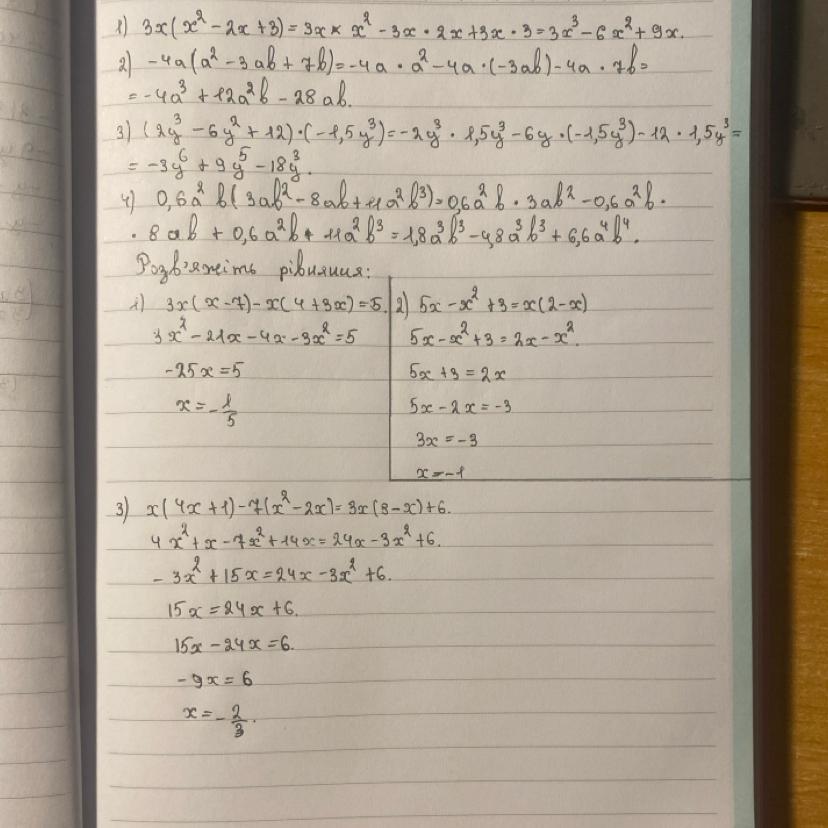 1) 3x(x² - 2x + 3) = 3x × x² - 3x · 2x + 3x · 3 = 3x³ - 6x² + 9x.
2) -4a(a² - 3ab + 7b) = -4a · a² - 4a · (-3ab) - 4a · 7b =
= -4a³ + 12a²b - 28ab.
3) (2y³ - 6y² + 12) · (-1,5y³) = -2y³ · 1,5y³ - 6y · (-1,5y³) - 12 · 1,5y³ =
= -3y⁶ + 9y⁵ - 18y³.
4) 0,6a²b(3ab² - 8ab + 11a²b³) = 0,6a²b · 3ab² - 0,6a²b ·
· 8ab + 0,6a²b · 11a²b³ = 1,8a³b³ - 4,8a³b³ + 6,6a⁴b⁴.
Розв'яжіть рівняння:
1) 3x(x - 7) - x(4 + 3x) = 5.
3x² - 21x - 4x - 3x² = 5
-25x = 5
x = -1/5
2) 5x - x² + 3 = x(2 - x)
5x - x² + 3 = 2x - x².
5x + 3 = 2x
5x - 2x = -3
3x = -3
x = -1
3) x(4x + 1) - 7(x² - 2x) = 3x(8 - x) + 6.
4x² + x - 7x² + 14x = 24x - 3x² + 6.
-3x² + 15x = 24x - 3x² + 6.
15x = 24x + 6.
15x - 24x = 6.
-9x = 6
x = -2/3.